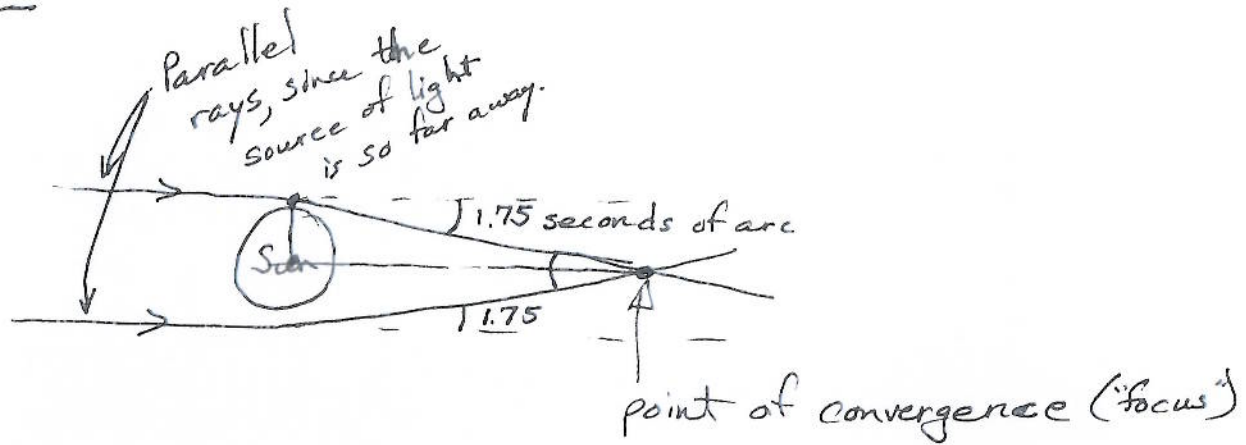 Parallel
rays, since the
source of light
is so far away.
1.75 seconds of arc
Sun
1.75
point of convergence ("focus")